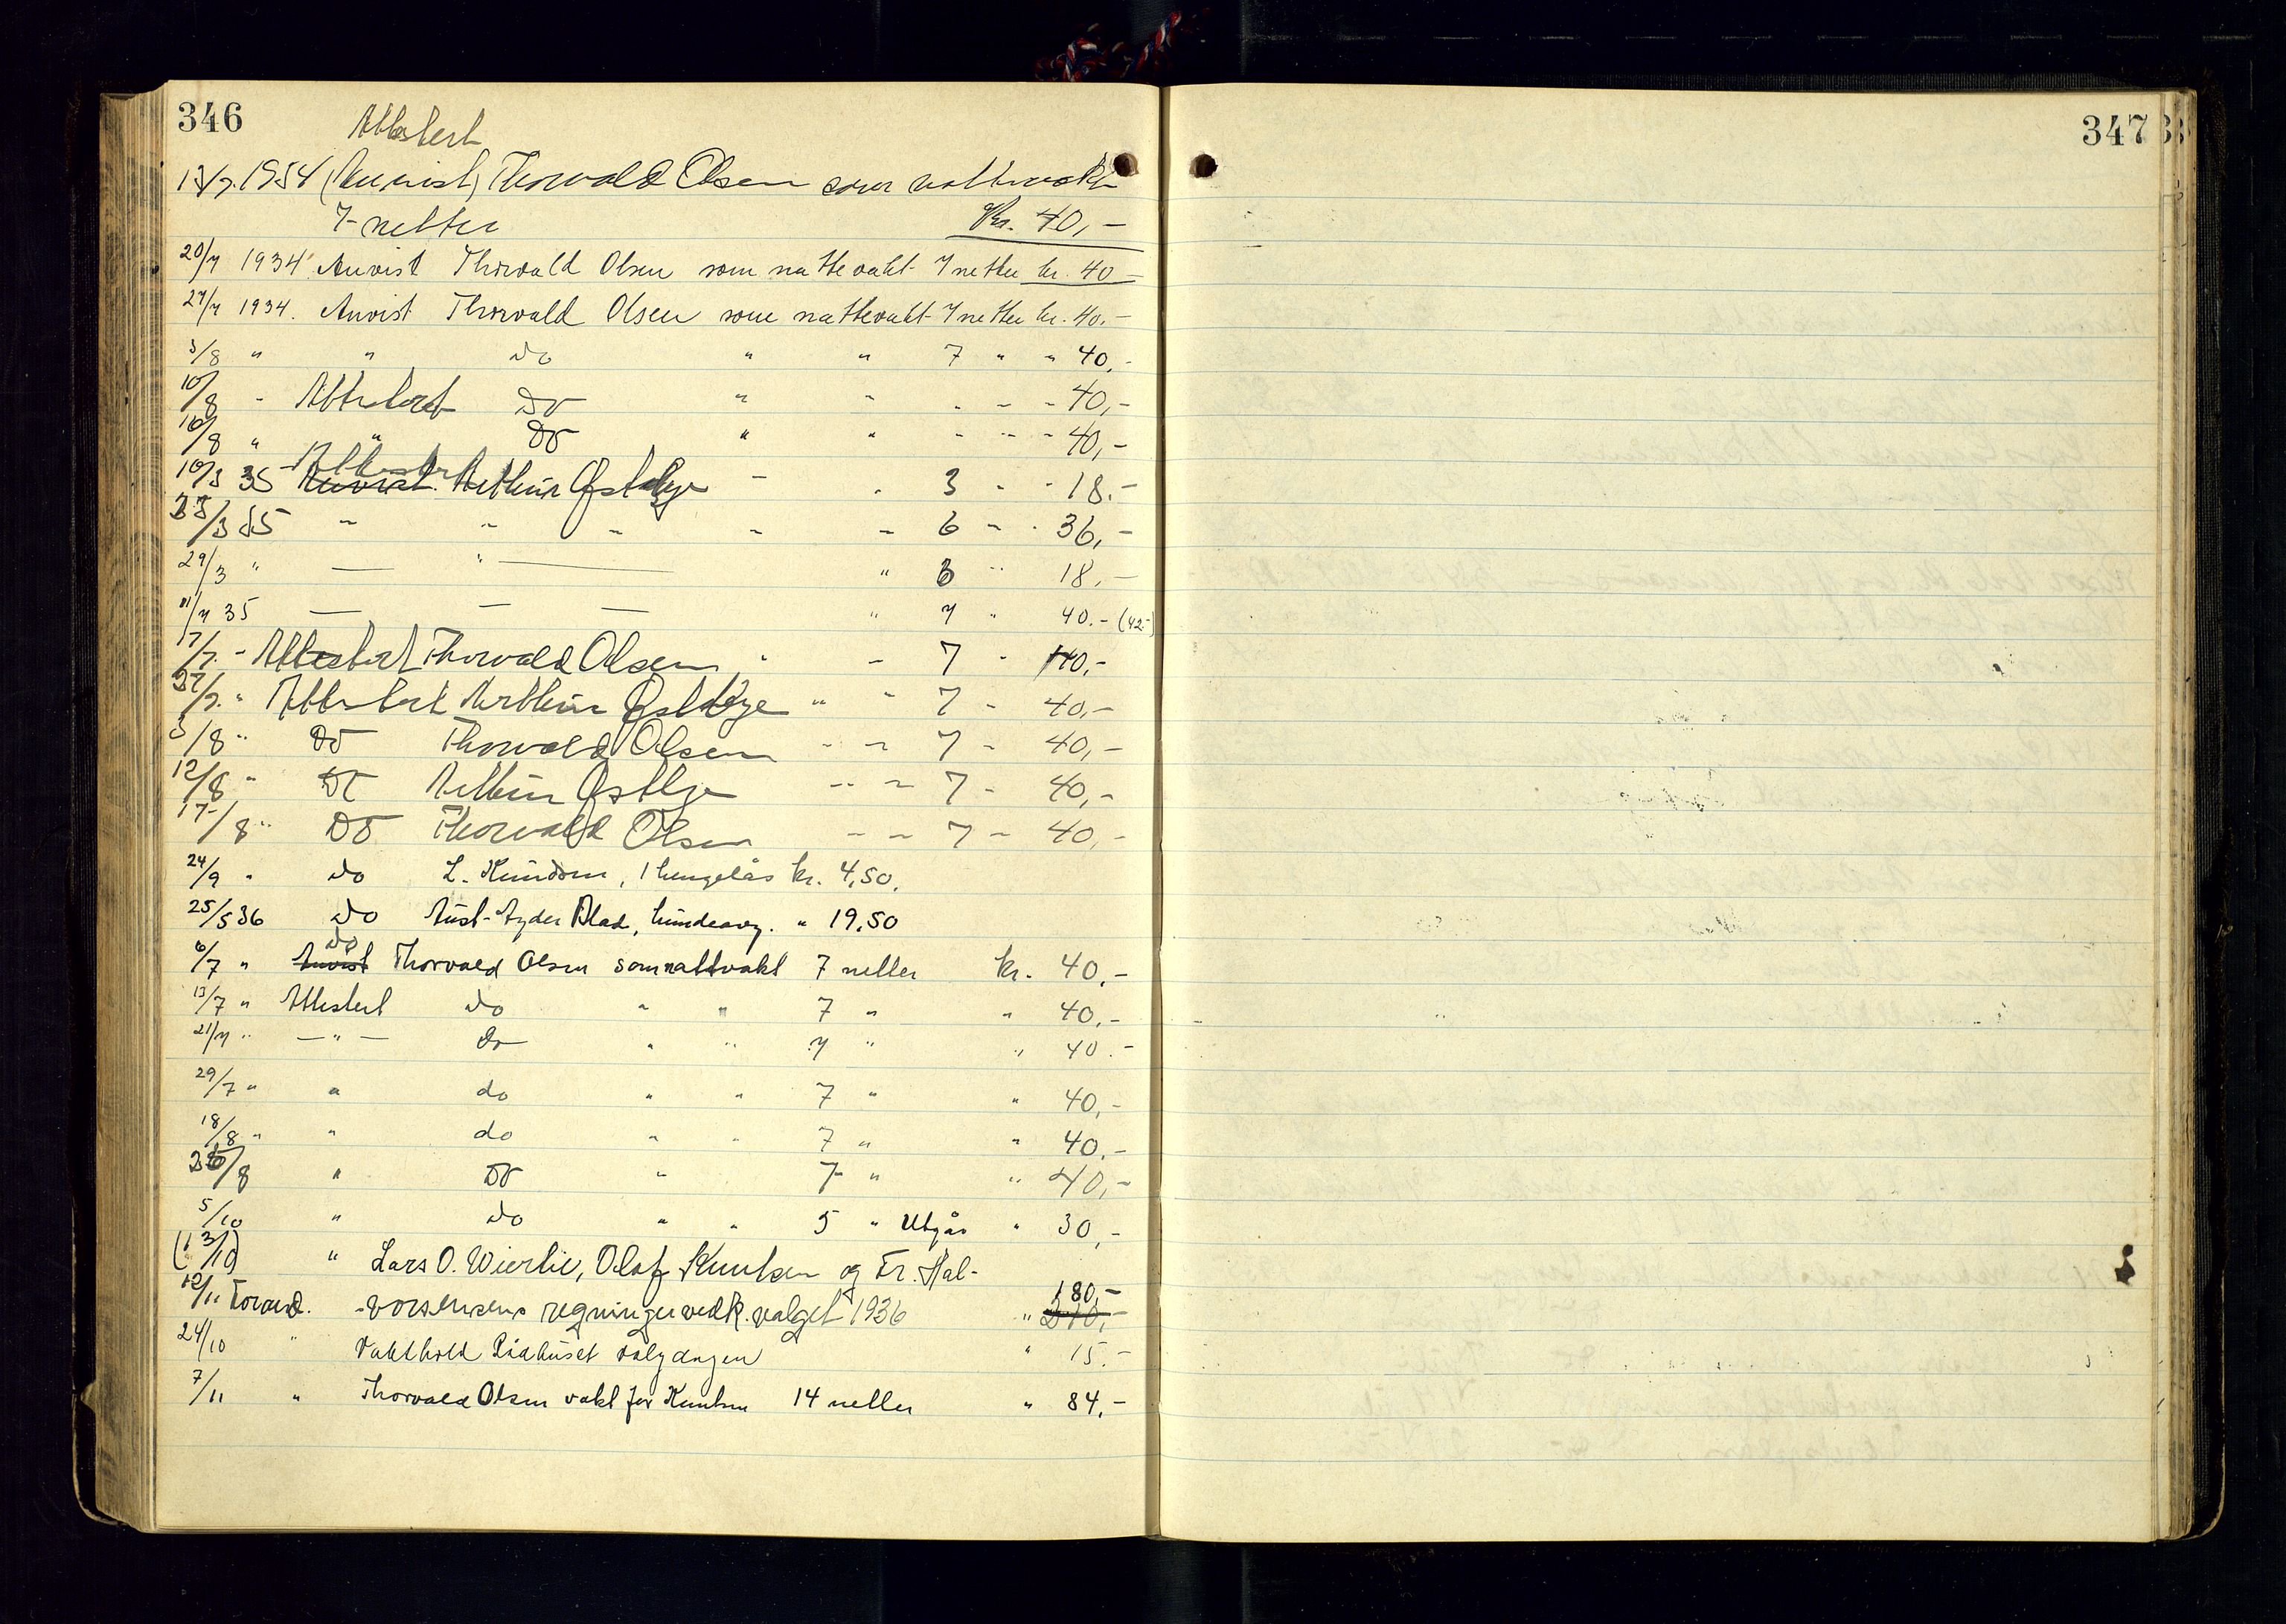 346
Attestert
13/7. 1934 (Anvist) Thorvald Olsen som nattevakt
7 netter Kr. 40,-
20/7 1934 Anvist Thorvald Olsen som nattevakt 7 netter kr. 40 -
27/7 1934. Anvist Thorvald Olsen som nattevakt 7 netter kr. 40.-
3/8 " " do " " 7 " " 40,-
10/8 - Attestert do " " - - - 40,-
16/8 " " do " " - - - 40,-
Attestert
10/3 35 Anvist. Arthur Østlye - - 3 - - 18.-
23/3 35 - - - - - 6 - - 36,-
29/3 " — " — " 3 " 18,-
11/7 35 — — — " 7 " 40.- (42-)
17/7. - Attestert Thorvald Olsen " - 7 - 40,-
27/7. " Attestert Arthur Østlye " " 7 - 40,-
3/8 " do Thorvald Olsen - - 7 - 40,-
12/8 " do Arthur Østlye - - 7 - 40,-
17/8 " do Thorvald Olsen - - 7 - 40,-
24/9 " do L. Knudsen, 1 hengelås kr. 4,50.
25/5 36 do Aust-Agder Blad, hundeavg. " 19,50
do
6/7 " Anvist Thorvald Olsen som nattvakt 7 netter kr. 40,-
13/7 " Attestert do " " 7 " " 40,-
21/7 " — " — do " " 7 " " 40.-
29/7 " " do " " 7 " " 40,-
18/8 " " do " " 7 " " 40,-
26/8 " do " 7 " " 40,-
5/10 " do " " 5 " Utgår " 30,-
(13/10) " Lars O. Wierlie, Olaf Knutsen og Fr. Hal-
180,-
12/11 Torvald. -vorsensens regninger vedk. valget 1936 " 210,-
24/10 " Vakthold Rådhuset valgdagen " 15.-
7/11 " Thorvald Olsen vakt for Knutsen 14 netter " 84,-
347